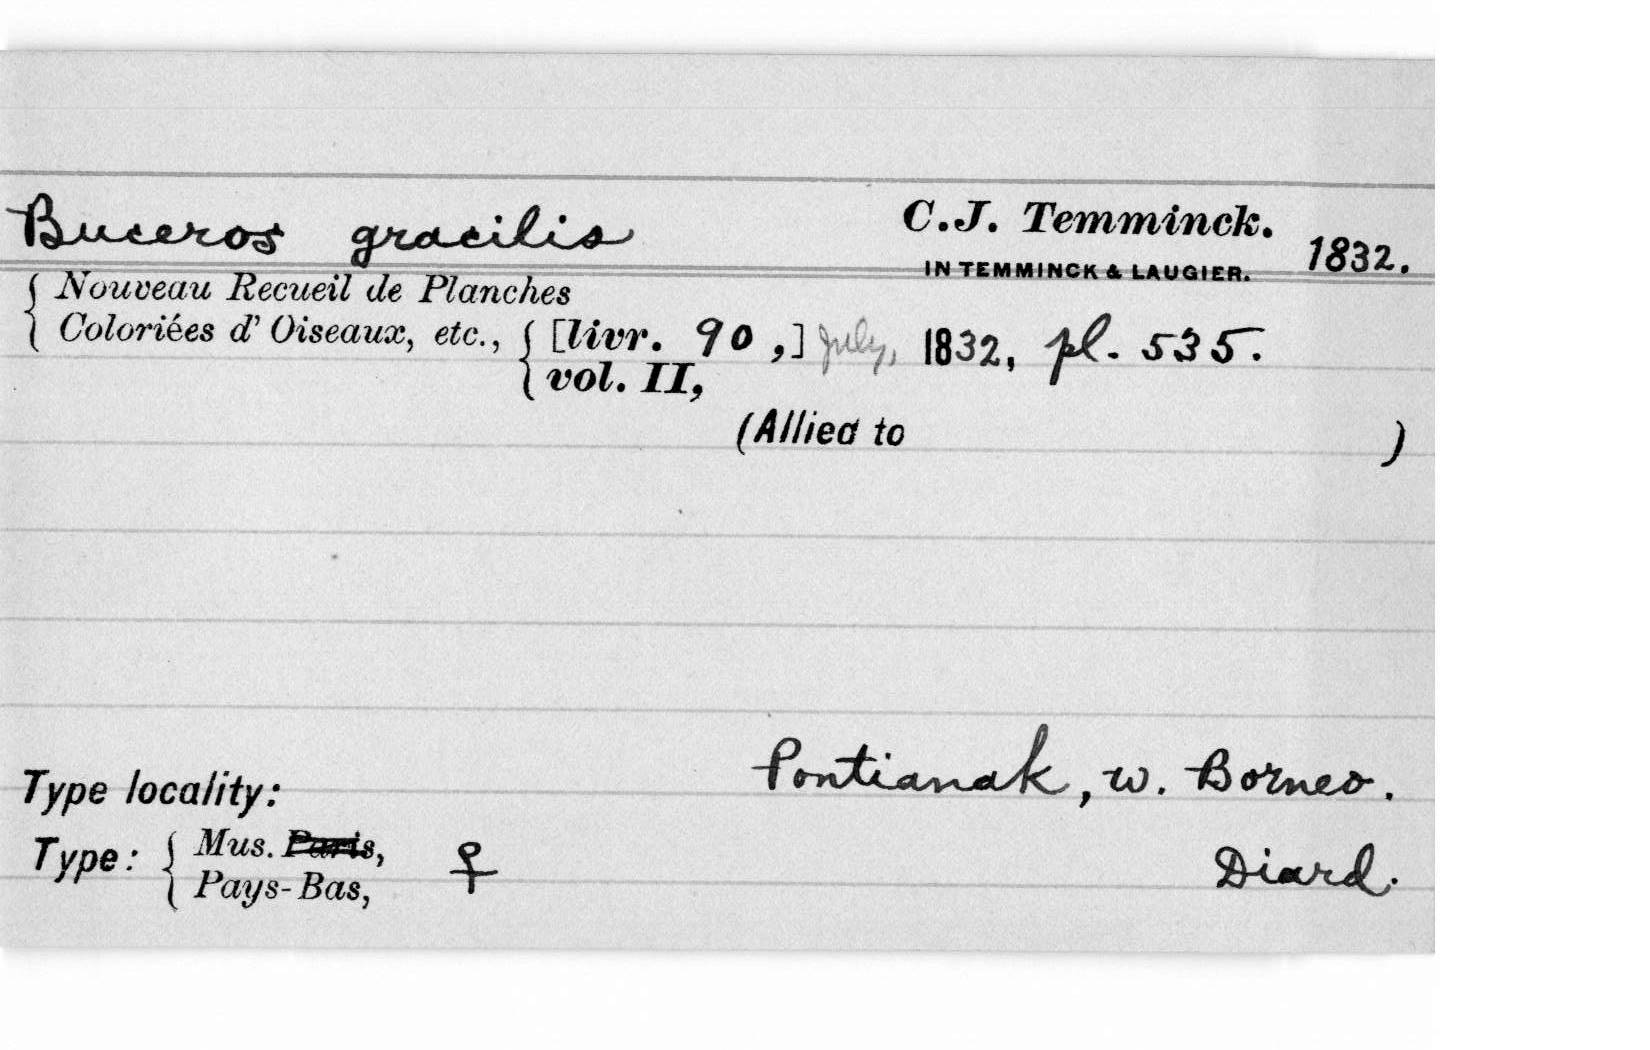 Buceros gracilis C.J. Temminck.
IN TEMMINCK & LAUGIER. 1832.
{ Nouveau Recueil de Planches
Coloriées d' Oiseaux, etc., { [livr. 90,] July, 1832, pl. 535.
vol. II,
(Allied to )
Type locality: Pontianak, w. Borneo.
Type: { Mus. Paris, ♀ Diard.
Pays-Bas,